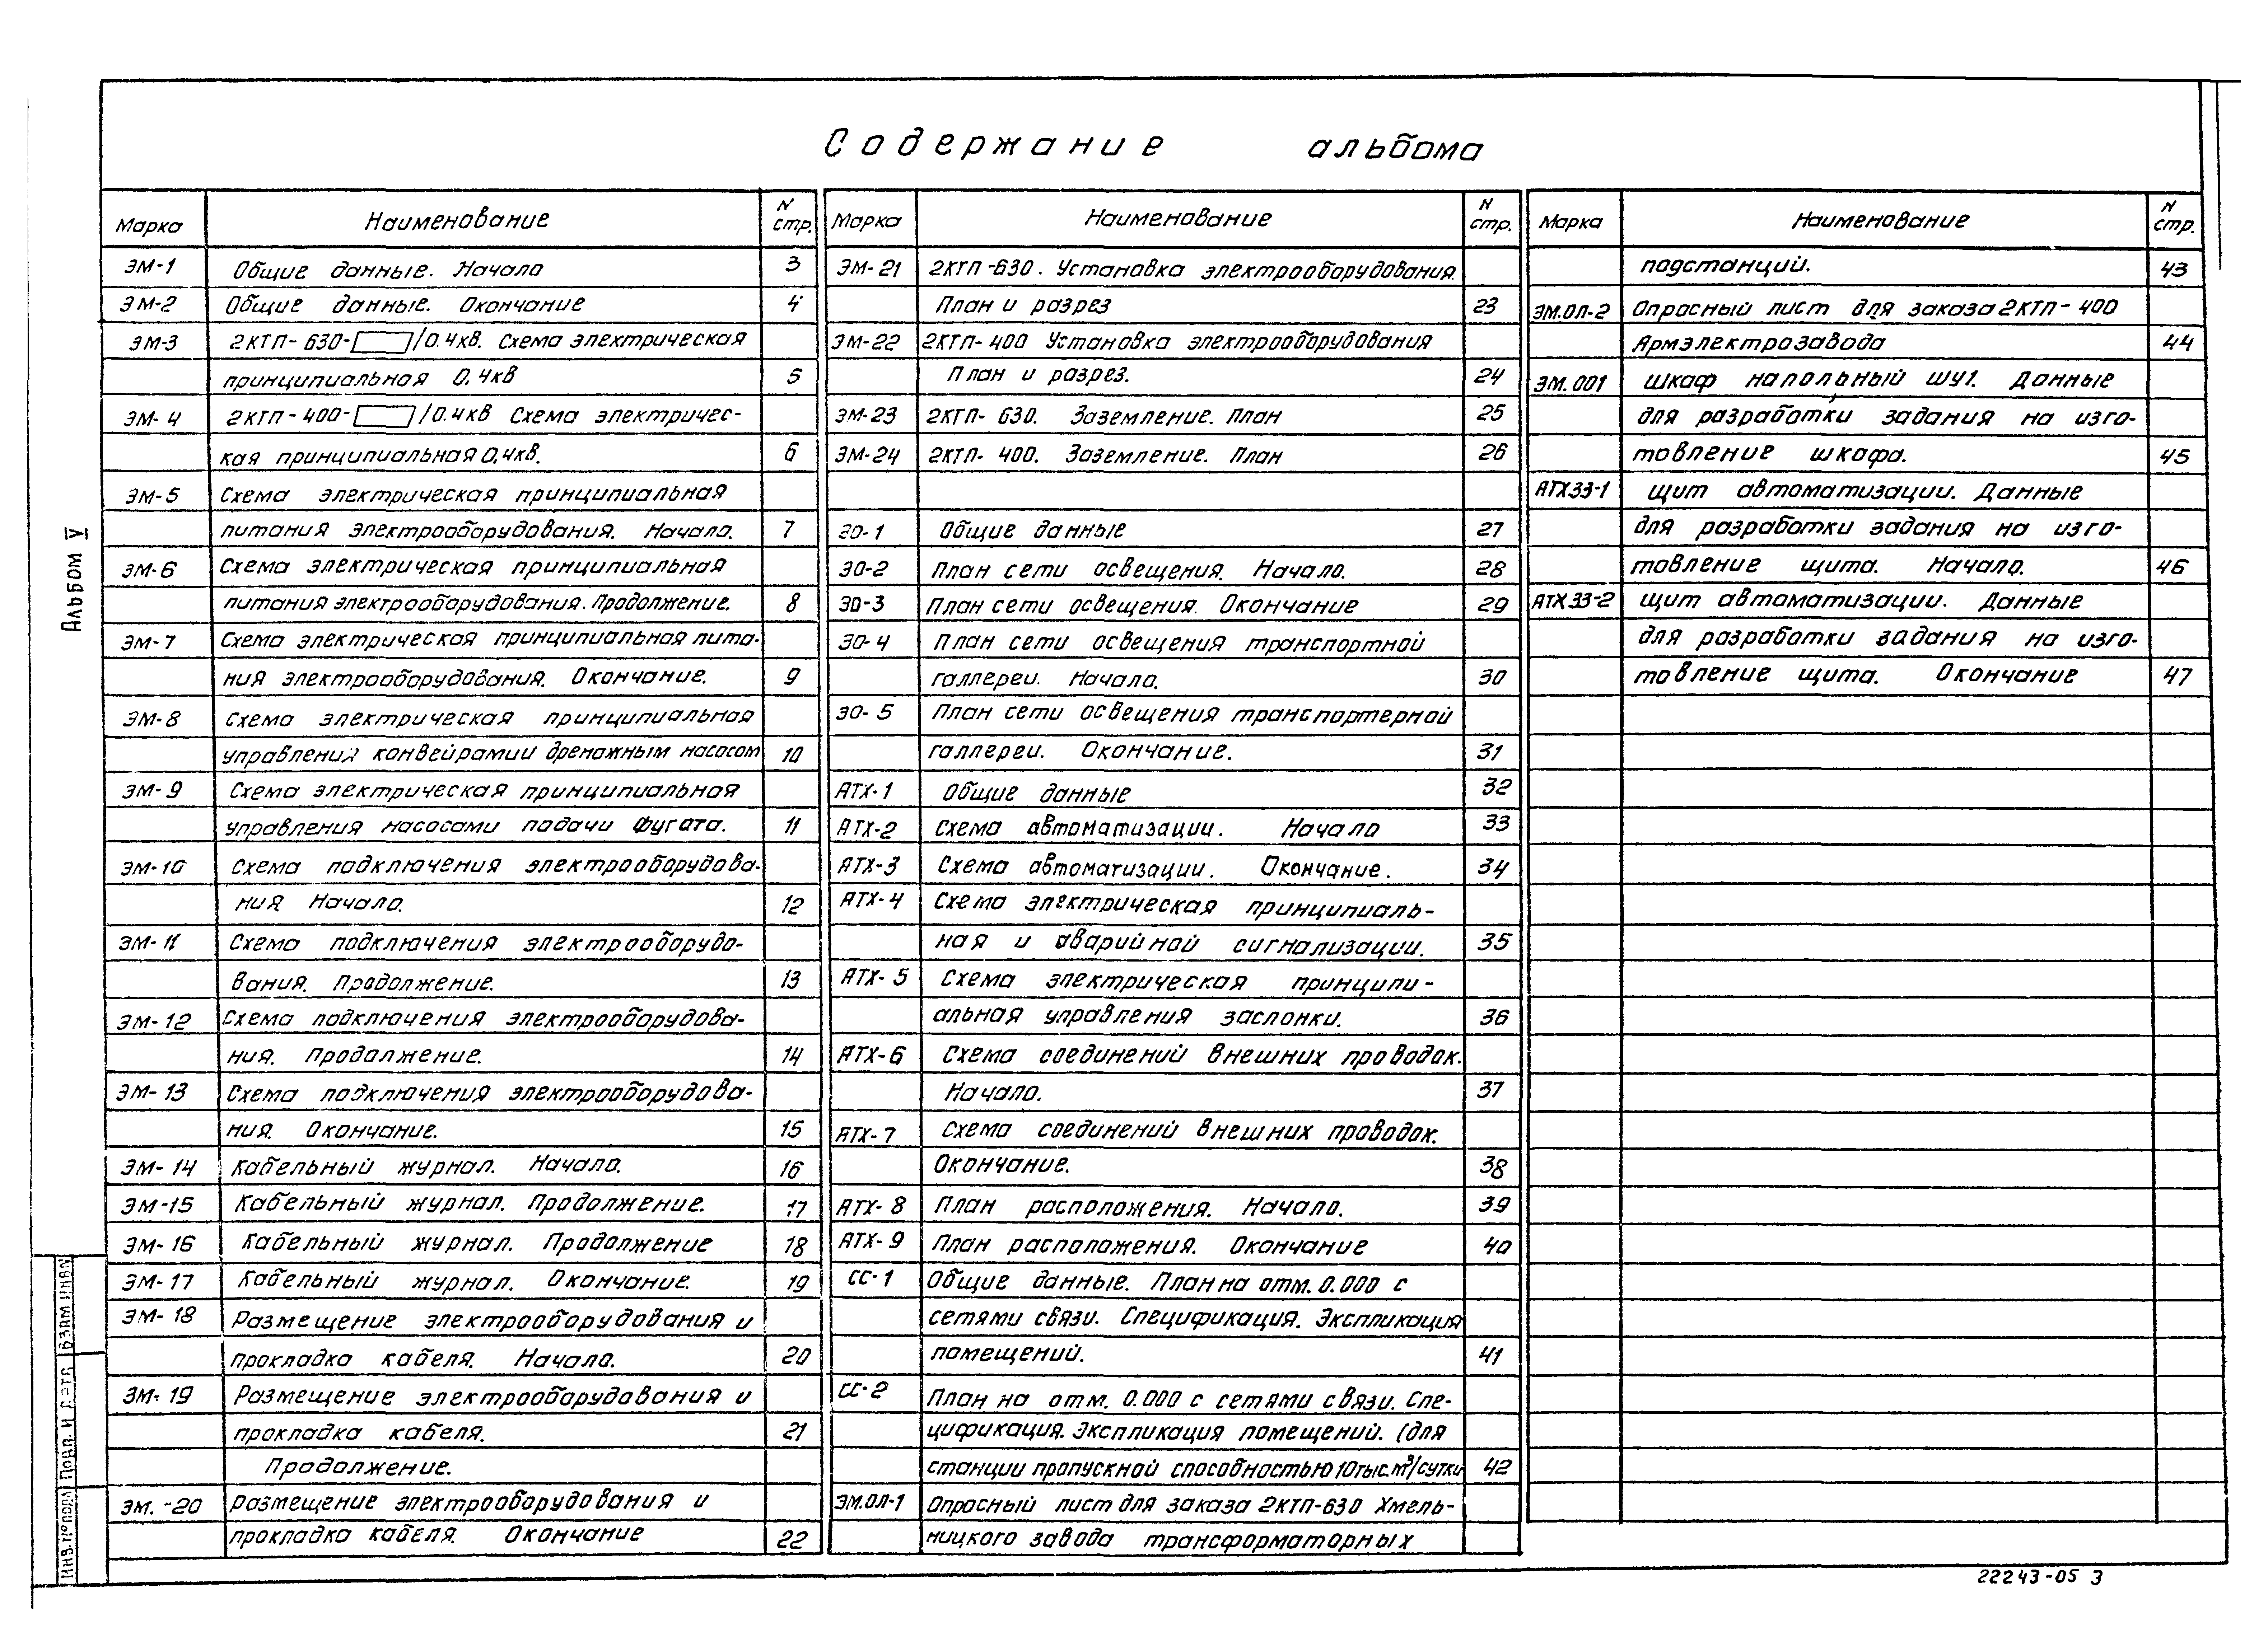 Содержание альбома
Марка Наименование N стр.
ЭМ-1 Общие данные. Начало 3
ЭМ-2 Общие данные. Окончание 4
ЭМ-3 2КТП-630- /0.4кв. Схема электрическая
принципиальная 0,4кв 5
ЭМ-4 2КТП-400- /0.4кв Схема электричес-
кая принципиальная 0,4кв. 6
ЭМ-5 Схема электрическая принципиальная
питания электрооборудования. Начало. 7
ЭМ-6 Схема электрическая принципиальная
питания электрооборудования. Продолжение. 8
ЭМ-7 Схема электрическая принципиальная пита-
ния электрооборудования. Окончание. 9
ЭМ-8 Схема электрическая принципиальная
управления конвейрамии дренажным насосом 10
ЭМ-9 Схема электрическая принципиальная
управления насосами подачи фугата. 11
ЭМ-10 Схема подключения электрооборудова-
ния Начало. 12
ЭМ-11 Схема подключения электрооборудо-
вания. Продолжение. 13
ЭМ-12 Схема подключения электрооборудова-
ния. Продолжение. 14
ЭМ-13 Схема подключения электрооборудова-
ния. Окончание. 15
ЭМ-14 Кабельный журнал. Начало. 16
ЭМ-15 Кабельный журнал. Продолжение. 17
ЭМ-16 Кабельный журнал. Продолжение 18
ЭМ-17 Кабельный журнал. Окончание. 19
ЭМ-18 Размещение электрооборудования и
прокладка кабеля. Начало. 20
ЭМ-19 Размещение электрооборудования и
прокладка кабеля. 21
Продолжение.
ЭМ.-20 Размещение электрооборудования и
прокладка кабеля. Окончание 22
Марка Наименование N стр.
ЭМ-21 2КТП-630. Установка электрооборудования.
План и разрез 23
ЭМ-22 2КТП-400 Установка электрооборудования
План и разрез. 24
ЭМ-23 2КТП-630. Заземление. План 25
ЭМ-24 2КТП-400. Заземление. План 26
ЭО-1 Общие данные 27
ЭО-2 План сети освещения. Начало. 28
ЭО-3 План сети освещения. Окончание 29
ЭО-4 План сети освещения транспортной
галлереи. Начало. 30
ЭО-5 План сети освещения транспортерной
галлереи. Окончание. 31
АТХ-1 Общие данные 32
АТХ-2 Схема автоматизации. Начало 33
АТХ-3 Схема автоматизации. Окончание. 34
АТХ-4 Схема электрическая принципиаль-
ная и аварийной сигнализации. 35
АТХ-5 Схема электрическая принципи-
альная управления заслонки. 36
АТХ-6 Схема соединений внешних проводок.
Начало. 37
АТХ-7 Схема соединений внешних проводок.
Окончание. 38
АТХ-8 План расположения. Начало. 39
АТХ-9 План расположения. Окончание 40
СС-1 Общие данные. План на отм. 0.000 с
сетями связи. Спецификация. Экспликация
помещений. 41
СС-2 План на отм. 0.000 с сетями связи. Спе-
цификация. Экспликация помещений. (для
станции пропускной способностью 10тыс.м³/сутки 42
ЭМ.ОЛ-1 Опросный лист для заказа 2КТП-630 Хмель-
ницкого завода трансформаторных
Марка Наименование N стр.
подстанций. 43
ЭМ.ОЛ-2 Опросный лист для заказа 2КТП-400
Армэлектрозавода 44
ЭМ.001 Шкаф напольный ШУ1. Данные
для разработки задания на изго-
товление шкафа. 45
АТХ33-1 Щит автоматизации. Данные
для разработки задания на изго-
товление щита. Начало. 46
АТХ33-2 Щит автоматизации. Данные
для разработки задания на изго-
товление щита. Окончание 47
Альбом V
Взам инв N
Подп. и дата
Инв. № подл
22243-05 3